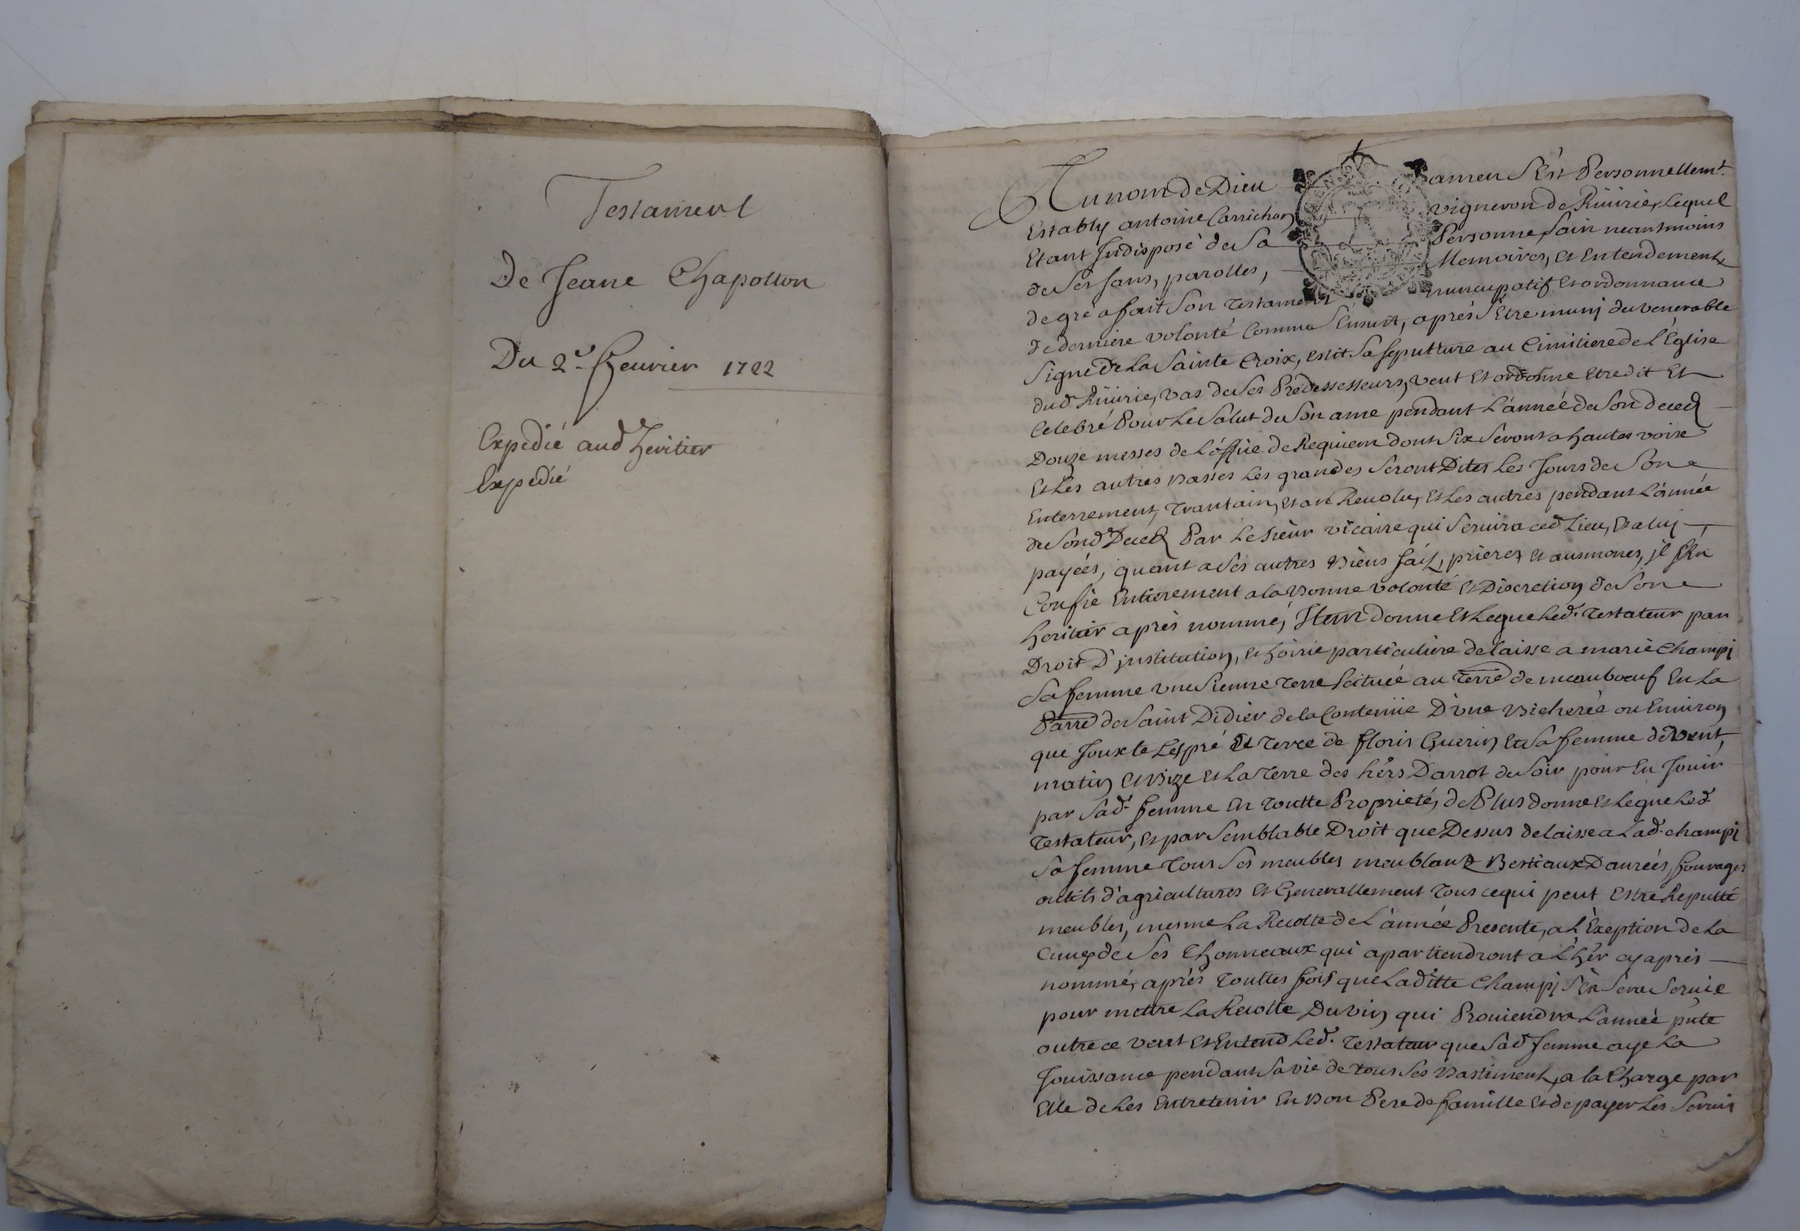 Testament
De Jeane Chapollon
Du 2e feurier 1722
Expedié aud heritier
Expedié
Au nom de Dieu amen S'est Personnellemt
Estably antoine Carrichon vigneron de Riuirie, Lequel
Etant Indisposé de Sa Personne, sain neantmoins
de Ses sans, parolles, Memoires, et Entendement,
de gré a fait Son Testament nuncupatif et ordonnance
de derniere volonté Comme S'ensuit, aprés S'etre muni du venerable
Signe de La Sainte Croix, eslit Sa sepulture au Cimitiere de L'Eglise
dud Riuirie, vas de Ses Prédessesseurs, veut et ordonne etre dit et
Celebré Pour Le Salut de Son ame pendant L'année de Son deced
Douze messes de L'offiie de Requiem dont Six Seront a hautes voix
et Les autres basses Les grandes Seront Dites Les Jours de Son
Enterrement, Trantain, et an Reuolu, et Les autres pendant L'année
de Sond Deced Par Le Sieur vicaire qui Seruira ced Lieu, et a luy
payées, quant a Ses autres biens fait, prieres et aumones, jl s'en
Confie Entierement a la bonne volonté et Discretion de Son
heritier aprés nommé, Item donne et Legue Led. Testateur par
Droit D'jnstitution, et hoirie particuliere delaisse a marie Champi
Sa femme vne Sienne Terre Scituée au Terre de meauboeuf En La
Parre de Saint Didier de la Contenüe D'vne bicherée ou Enuiron
que Jouxte Les pré et Terre de floris Guerin et Sa femme de vent,
matin et bize et La Terre des hers Darrot du Soir pour En Jouir
par Sad. femme En Toutte Proprieté, de Plus donne et Legue Led.
Testateur, et par Semblable Droit que Dessus delaisse a Lad. champi
Sa femme Tous Ses meubles meublant Bestiaux Danrées, fourages
outils d'agricultures et Generallement Tous ce qui peut Estre Reputté
meubles, mesme La Recolte de L'année Presente, a L'Exeption de La
Cuue de Ses Thonneaux qui apartiendront a L'her cy aprés
nommé, aprés Touttes fois que Laditte Champi S'en Sera Seruie
pour mettre La Recolte Du vin qui Prouiendra L'année pnte
outre ce veut et Entend Led. Testateur que Sad femme aye La
Jouissance pendant Sa vie de tous Ses bastiment, a la Charge par
Elle de Les Entretenir En bon Pere de famille et de payer Les Seruis